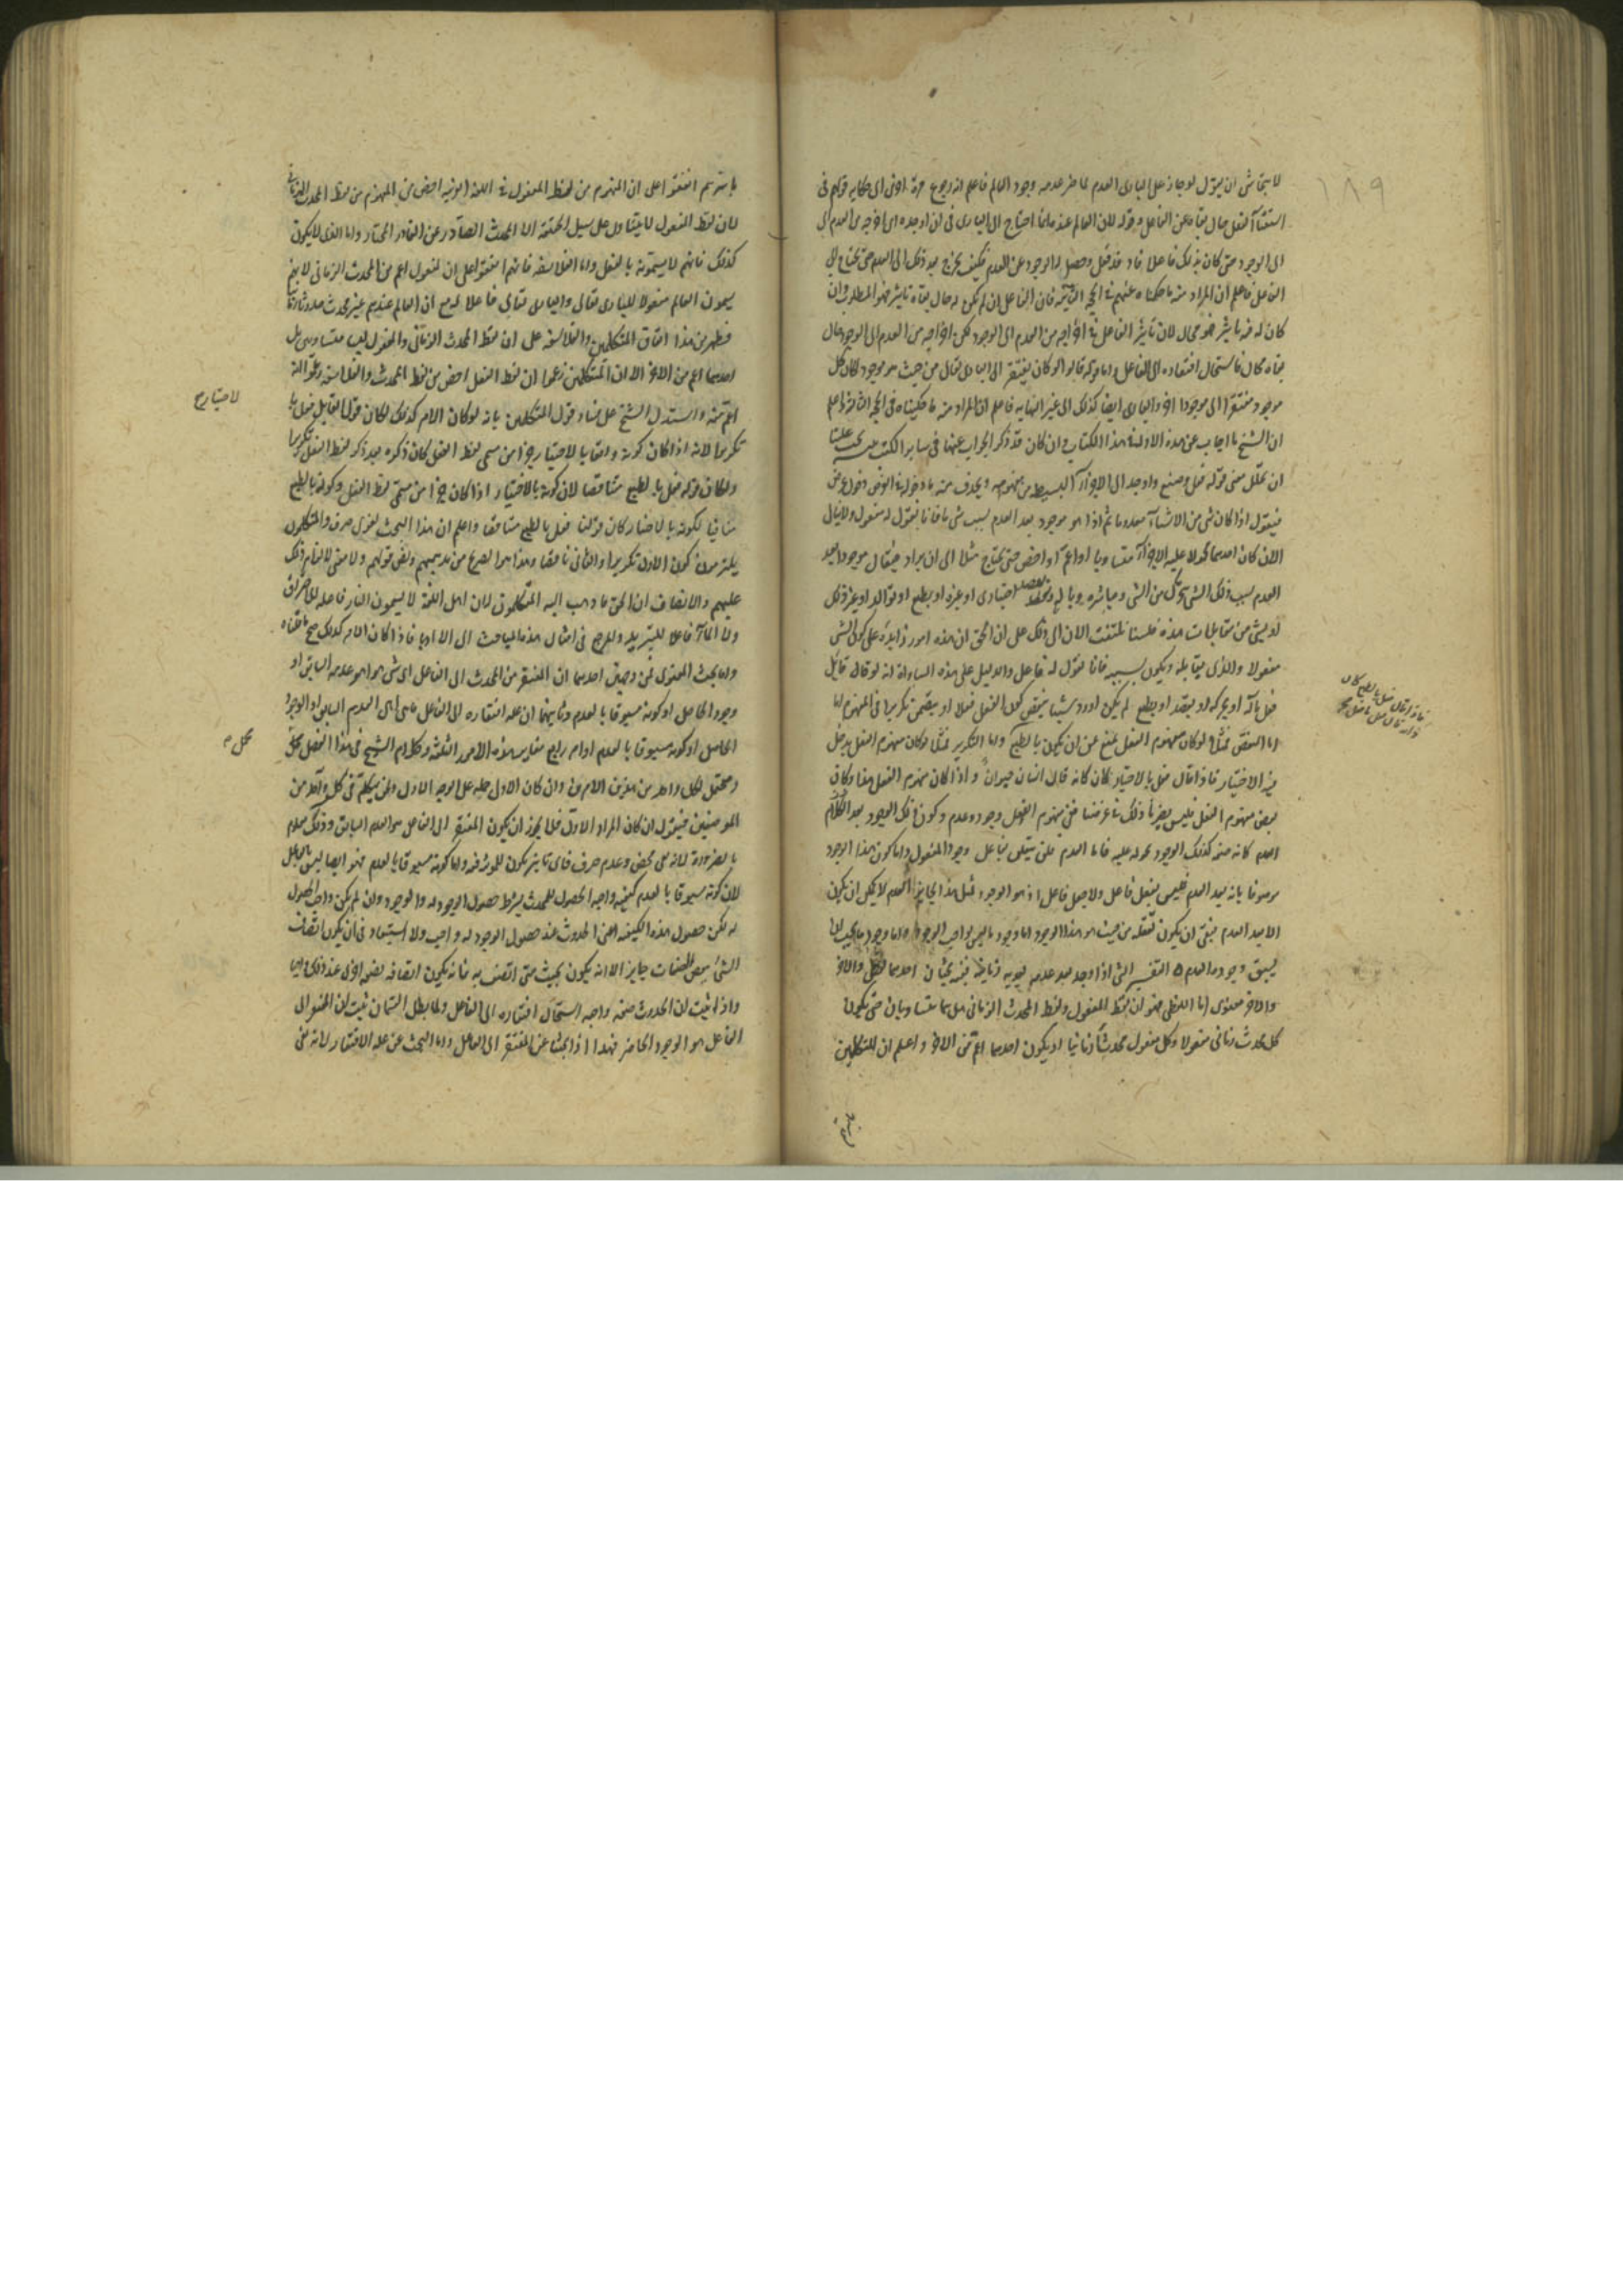 ١٨٩
لا يتحاشى ان يقول لو جاز على البارى العدم لما ضر عدمه وجود العالم فاعلم انه رجوع مرة اخرى الى حكاية قولهم فى
استغناء الفعل حال بقاه عن الفاعل وقوله لان العالم عندهم انما احتاج الى البارى فى ان اوجده اى اخرجه من العدم الى
الى الوجود حتى كان بذلك فاعلا فاذ قد فعل وحصل له الوجود عن العدم فكيف يخرج بعد ذلك الى العدم حتى يحتاج الى
الفاعل فاعلم ان المراد منه ما حكيناه عنهم فى الحجة الثانية فان الفاعل ان لم يكن له حال بقاه تاثير فهو المطلوب وان
كان له فيه تاثير فهو محال لان تاثير الفاعل فى اخراجه من العدم الى الوجود لكن اخراجه من العدم الى الوجود حال
بقاه محال فاستحال افتقاره الى الفاعل واما قوله قالوا لو كان يفتقر الى البارى تعالى من حيث هو موجود لكان كل
موجود مفتقرا الى موجود اخر والبارى ايضا كذلك الى غير النهاية فاعلم ان المراد منه ما حكيناه فى الحجة الثالثة واعلم
ان الشيخ ما اجاب عن هذه الادلة فى هذا الكتاب وان كان قد ذكر الجواب عنها فى ساير الكتب يجب علينا
ان نحلل معنى قولنا فعل وصنع واوجد الى الاجزاء البسيطة من مفهومه ونحذف منه ما دخوله فى الغرض دخول عرضى
فنقول اذا كان شى من الاشياء معدوما ثم اذا هو موجود بعد العدم بسبب شى ما فانا نقول له مفعول ولا نبالى
الان كان احدهما محمولا عليه الاخر مساويا او اعم او اخص حتى يحتاج مثلا الى ان يزاد فيقال موجود بعد
العدم بسبب ذلك الشى بتحرك من الشى ومباشرة وبالة وبقصد اختيارى او غيره او بطبع او تولد او غير ذلك
او بشى من مقابلات هذه فلسنا نلتفت الان الى ذلك على ان الحق ان هذه امور زايدة على كون الشى
مفعولا والذى يقابله ويكون بسببه فانا نقول له فاعل والدليل على هذه المساواة انه لو قال قايل
فعل بآلة او بحركة او بقصد او بطبع لم يكن اورد شيئا ينقض كون الفعل فعلا او يتضمن تكريرا فى المفهوم اما
اما النقض فمثلا لو كان مفهوم الفعل يمنع عن ان يكون بالطبع واما التكرير فمثلا لو كان مفهوم الفعل يدخل
فيه الاختيار فاذا قال فعل بالاختيار كان كانه قال انسان حيوان واذا كان مفهوم الفعل هذا وكان
بعض مفهوم الفعل فليس يضرنا ذلك فى غرضنا ففى مفهوم الفعل وجود وعدم وكون ذلك الوجود بعد العدم
العدم كانه صفة كذلك الوجود محمولة عليه فاما العدم فلن يتعلق بفاعل وجود المفعول واما كون هذا الوجود
موصوفا بانه بعد العدم فليس بفعل فاعل ولا جعل جاعل اذ هو الوجود لمثل هذا الجايز العدم لا يمكن ان يكون
الا بعد العدم فبقى ان يكون تعلقه من حيث هو هذا الوجود اما وجود ما ليس بواجب الوجود واما وجود ما يجب ان
يسبق وجوده العدم ٥ التفسير الشى اذا وجد بعد عدمه بعدية زمانية ففيه بحثان احدهما لفظى والاخر
والاخر معنوى اما اللفظى فهو ان لفظ المفعول ولفظ المحدث الزمانى هل هما متساويان حتى يكون
كل محدث زمانى مفعولا وكل مفعول محدثا زمانيا او يكون احدهما اعم من الاخر واعلم ان المتكلمين
فاذا قال فعل بالطبع كان
كانه قال فعل ما فعل
باسرهم اتفقوا على ان المفهوم من لفظ المفعول فى اللغة العربية اخص من المفهوم من لفظ المحدث الزمانى
لان لفظ المفعول لا يتناول على سبيل الحقيقة الا المحدث الصادر عن القادر المختار واما الذى لا يكون
كذلك فانهم لا يسمونه بالفعل واما الفلاسفة فانهم اتفقوا على ان المفعول اعم من المحدث الزمانى لانهم
يسمون العالم مفعولا للبارى تعالى والبارى تعالى فاعلا له مع ان العالم عندهم غير محدث حدوثا زمانيا
فظهر من هذا اتفاق المتكلمين والفلاسفة على ان لفظ المحدث الزمانى والمفعول ليسا متساويين بل
احدهما اعم من الاخر الا ان المتكلمين زعموا ان لفظ الفعل اخص من لفظ المحدث والفلاسفة زعموا انه
اعم منه واستدل الشيخ على فساد قول المتكلمين بانه لو كان الامر كذلك لكان قول القايل فعل با
لاختيار ح
تكريرا لانه اذا كان كونه واقعا بالاختيار جزءا من مسمى لفظ الفعل كان ذكره بعد ذكر لفظ الفعل تكريرا
ولكان قوله فعل بالطبع متناقضا لان كونه بالاختيار اذا كان جزءا من مسمى لفظ الفعل وكونه بالطبع
منافيا لكونه بالاختيار كان قولنا فعل بالطبع متناقضا واعلم ان هذا البحث لغوى صرف والمتكلمون
يلتزمون كون الاول تكريرا والثانى ناقضا وهذا هو الصريح من مذهبهم ونفس قولهم ولا معنى لالزام ذلك
عليهم والانصاف ان الحق ما ذهب اليه المتكلمون لان اهل اللغة لا يسمون النار فاعلة للاحراق
ولا الماء فاعلا للتبريد والمرجع فى امثال هذه المباحث الى الادباء فاذا كان الامر كذلك صح ما قلناه
واما بحث المعنوى فمن وجهين احدهما ان المفتقر من المحدث الى الفاعل اى شى هو اهو عدمه السابق او
وجوده الحاصل او كونه مسبوقا بالعدم وثانيهما ان علة افتقاره الى الفاعل ماهى اهى العدم السابق او الوجود
الحاصل او كونه مسبوقا بالعدم او امر رابع مغاير لهذه الامور الثلثة وكلام الشيخ فى هذا الفصل محتمل
محمل م
ومحتمل لكل واحد من هذين الامرين وان كان الاول حمله على الوجه الاول ولنتكلم فى كل واحد من
الموضعين فنقول ان كان المراد الاول فلا يجوز ان يكون المفتقر الى الفاعل هو العدم السابق وذلك معلوم
بالضرورة لانه نفى محض وعدم صرف فاى تاثير يكون للموثر فيه واما كونه مسبوقا بالعدم فهو ايضا ليس بالفاعل
لان كونه مسبوقا بالعدم كيفية واجبة الحصول للمحدث بشرط حصول الوجود له والوجود وان لم يكن واجب الحصول
له لكن حصول هذه الكيفية اعنى الحدوث عند حصول الوجود له واجب ولا استبعاد فى ان يكون اتصاف
الشى ببعض الصفات جايز الا انه يكون بحيث متى اتصف به فانه يكون اتصافه بصفة اخرى عند ذلك واجبا
واذا ثبت ان الحدوث صفة واجبة استحال افتقاره الى الفاعل ولما بطل القسمان ثبت ان المفتقر الى
الفاعل هو الوجود الحاضر فهذا اذا بحثنا عن المفتقر الى الفاعل واما البحث عن علة الافتقار لانه متى